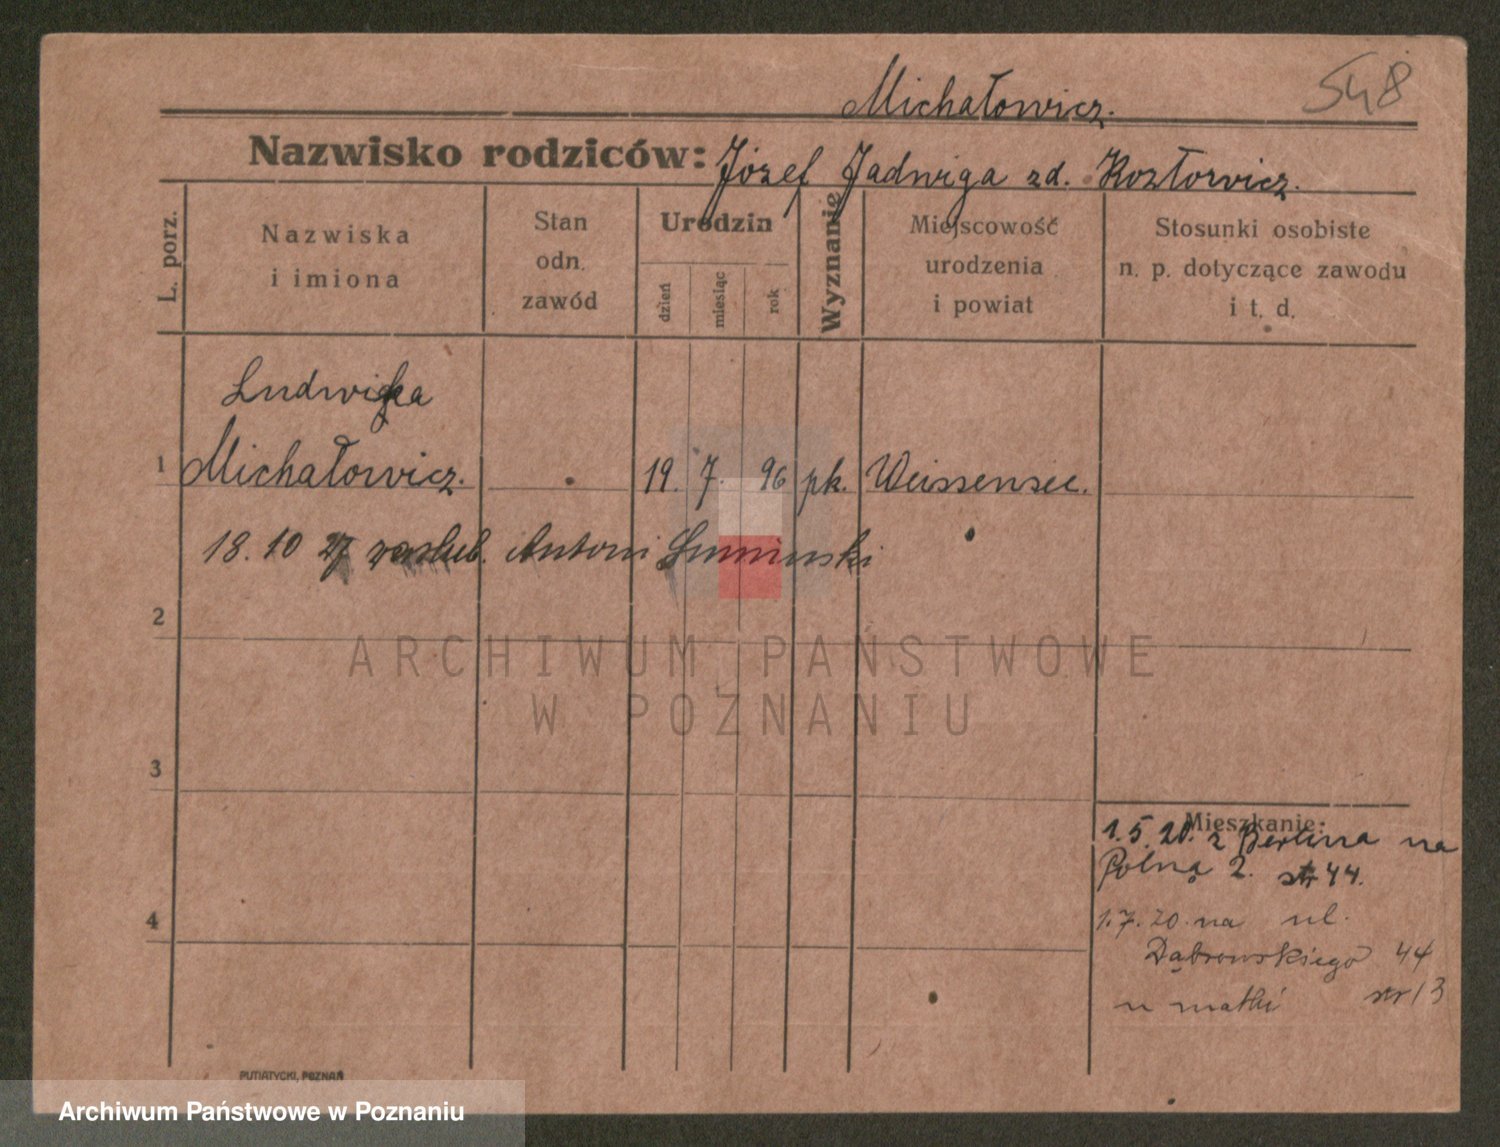 Michałowicz.
548
Nazwisko rodziców: Józef Jadwiga zd. Kozłowicz.
L. porz.
Nazwiska
i imiona
Stan
odn.
zawód
Urodzin
dzień
miesiąc
rok
Wyznanie
Miejscowość
urodzenia
i powiat
Stosunki osobiste
n. p. dotyczące zawodu
i t. d.
Ludwika
1 Michałowicz. 19. 7. 96 pk. Weissensee.
18.10 27 zaslub. Antoni
2
ARCHIWUM PAŃSTWOWE
W POZNANIU
3
Mieszkanie:
1.5.20. z Berlina na
Polną 2. str 44.
4
1.7.20. na ul.
Dąbrowskiego 44
u matki str 13
PUTIATYCKI, POZNAŃ
Archiwum Państwowe w Poznaniu